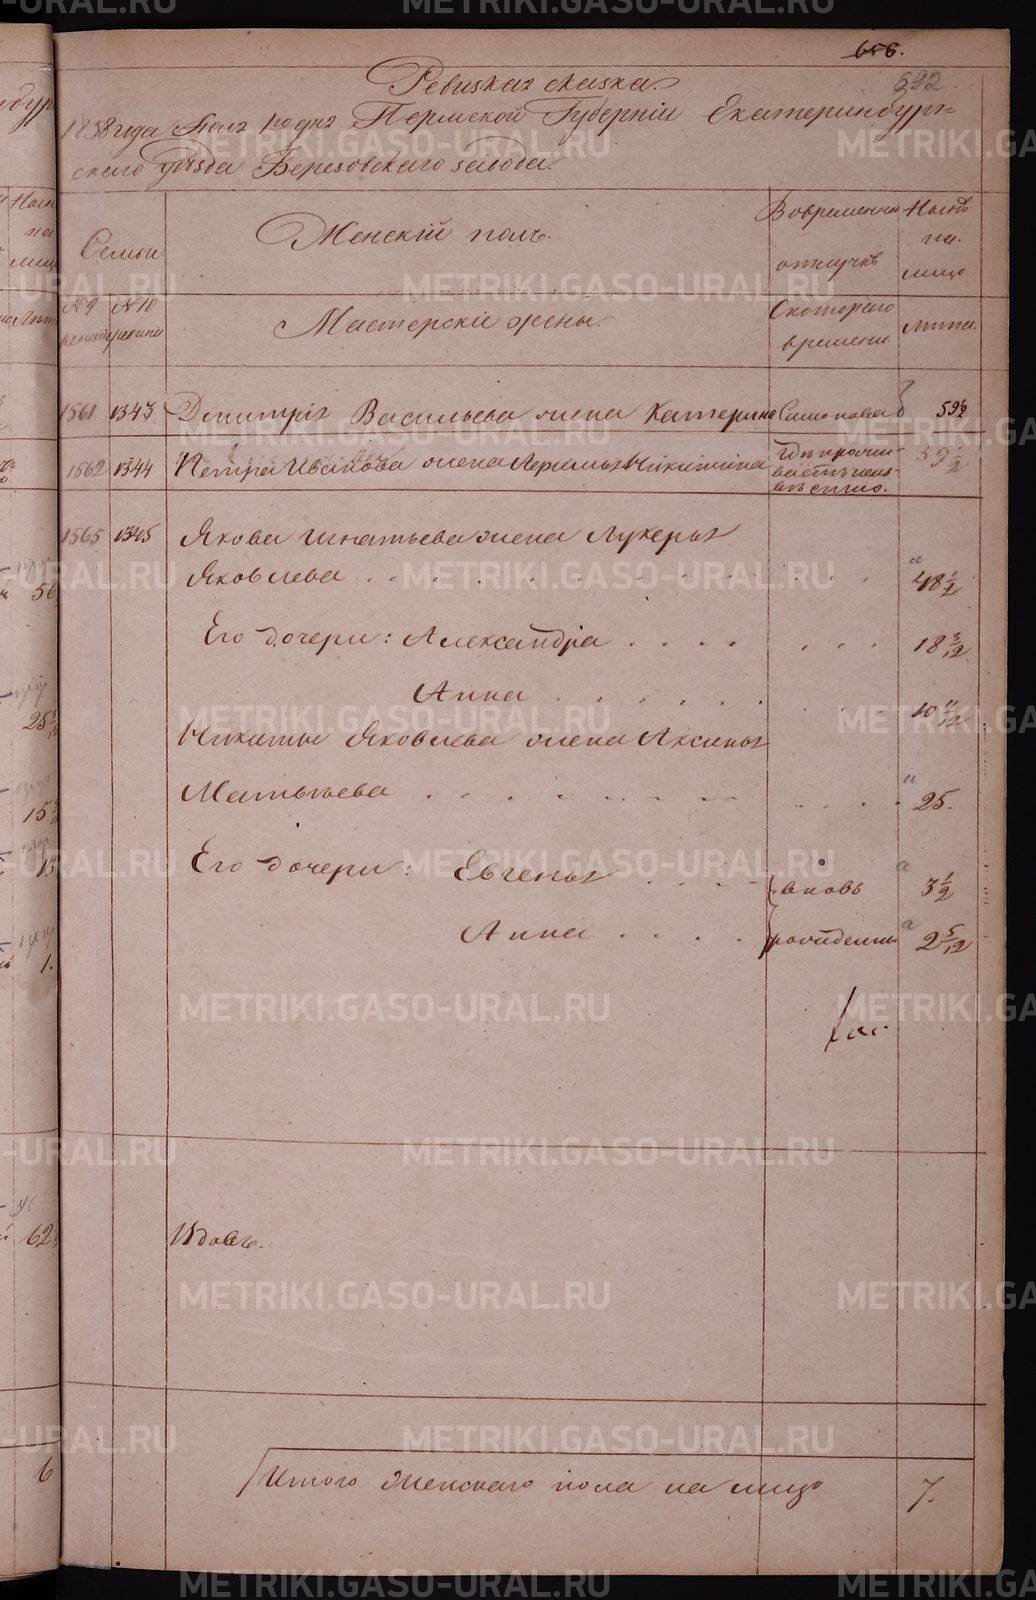 656.
592
Ревизкая сказка.
1858 года Маія 10 дня Пермской Губерніи Екатеринбург=
скаго уѣзда Березовскаго завода.
Семьи
Женскій полъ.
Во временно
отлучкѣ
Нынѣ
на
лицо
№ 9
ревизіи
№ 10
ревизіи
Мастерскіе жены.
Скотораго
времени
Лѣта.
1561 1343 Дмитрія Васильева жена Катерина Симонова 59½
1562 1344 Петра Иванова жена Никитина 59½
1565 1345 Якова Игнатьева жена Лукерья
Яковлева . . . . . . . . . . 48½
Его дочери: Александра . . . . . . . 18 3/12
Анна . . . . . . . . 10 11/12
Никиты Яковлева жена Аксинья
Матвѣева . . . . . . . . . . 25.
Его дочери: Евгенья . . . . вновь 3½
Анна . . . . рожденны 2 5/12
Вдовъ.
Итого женскаго пола на лицо 7.
METRIKI.GASO-URAL.RU